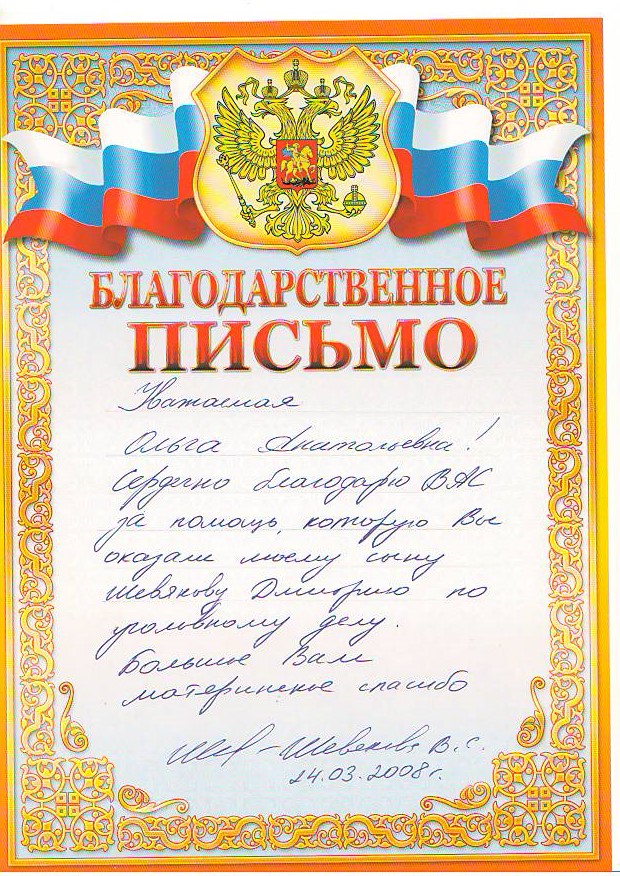 БЛАГОДАРСТВЕННОЕ
ПИСЬМО
Уважаемая
Ольга Анатольевна!
Сердечно благодарю ВАС
за помощь, которую Вы
оказали моему сыну
Шевякову Дмитрию по
уголовному делу.
Большое Вам
материнское спасибо
Шевякова В.С.
24.03.2008г.